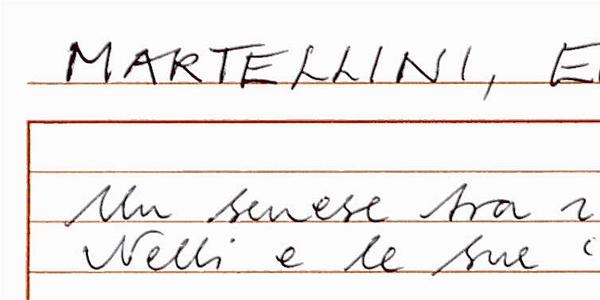 MARTELLINI, E
Un senese tra
Nelli e le sue